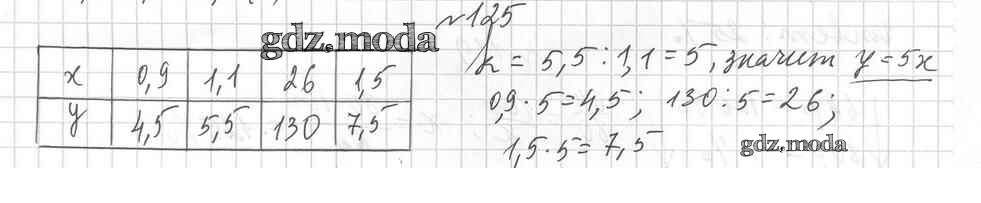 №125
gdz.moda
x 0,9 1,1 26 1,5
y 4,5 5,5 130 7,5
k = 5,5 : 1,1 = 5, значит y = 5x
0,9 · 5 = 4,5; 130 : 5 = 26;
1,5 · 5 = 7,5
gdz.moda